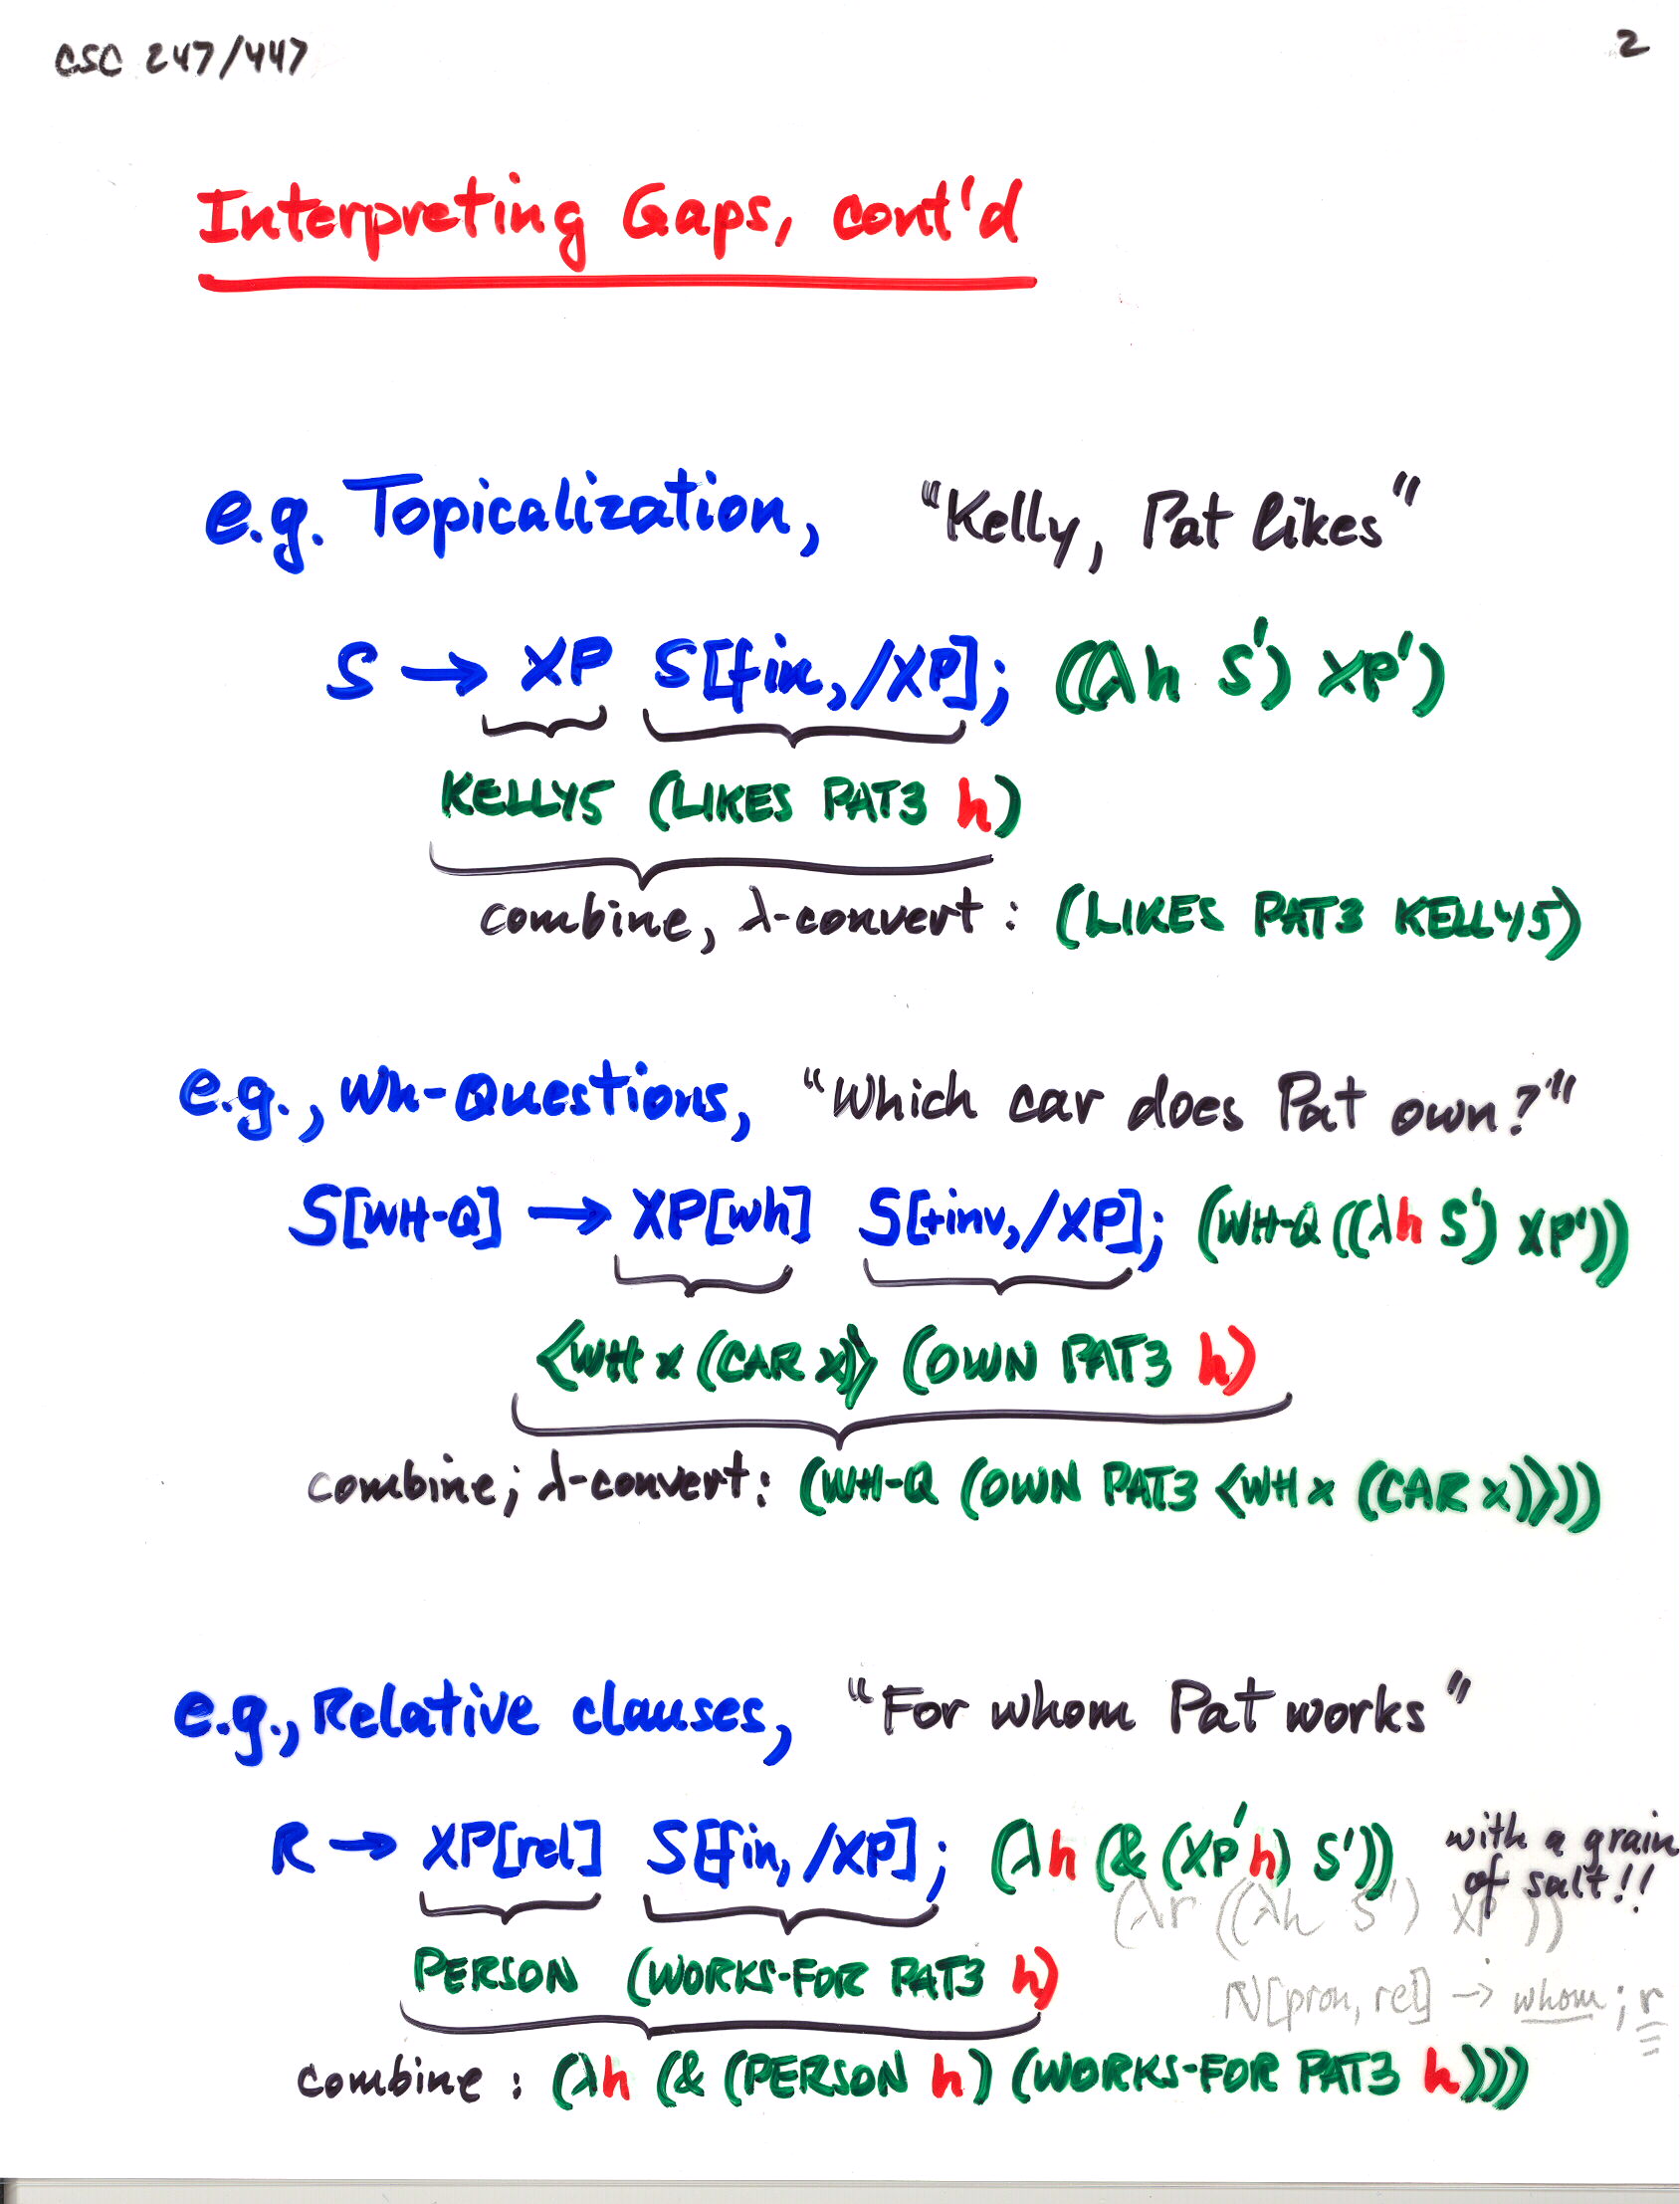 CSC 247/447
2
Interpreting Gaps, cont'd
e.g. Topicalization, "Kelly, Pat likes"
S → XP S[fin,/XP]; ((λh S') XP')
KELLY5 (LIKES PAT3 h)
combine, λ-convert: (LIKES PAT3 KELLY5)
e.g., Wh-Questions, "Which car does Pat own?"
S[WH-Q] → XP[wh] S[+inv,/XP]; (WH-Q ((λh S') XP'))
<WH x (CAR x)> (OWN PAT3 h)
combine; λ-convert: (WH-Q (OWN PAT3 <WH x (CAR x)>))
e.g., Relative clauses, "For whom Pat works"
R → XP[rel] S[fin, /XP]; (λh (& (XP' h) S')) with a grain
of salt!!
(λr ((λh S') XP'))
PERSON (WORKS-FOR PAT3 h)
N[pron, rel] → whom; r
combine: (λh (& (PERSON h) (WORKS-FOR PAT3 h)))